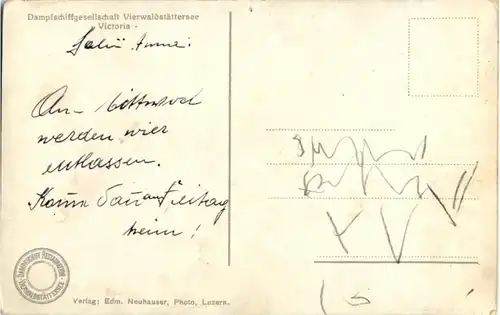 Dampfschiffgesellschaft Vierwaldstättersee
- Victoria -
Salü Anne!
An- Mittwoch
werden wier
entlassen.
Kome dan am Freitag
heim!
DAMPFSCHIFF RESTAURATION
VIERWALDSTÄTTERSEE
Verlag: Edm. Neuhauser, Photo, Luzern.